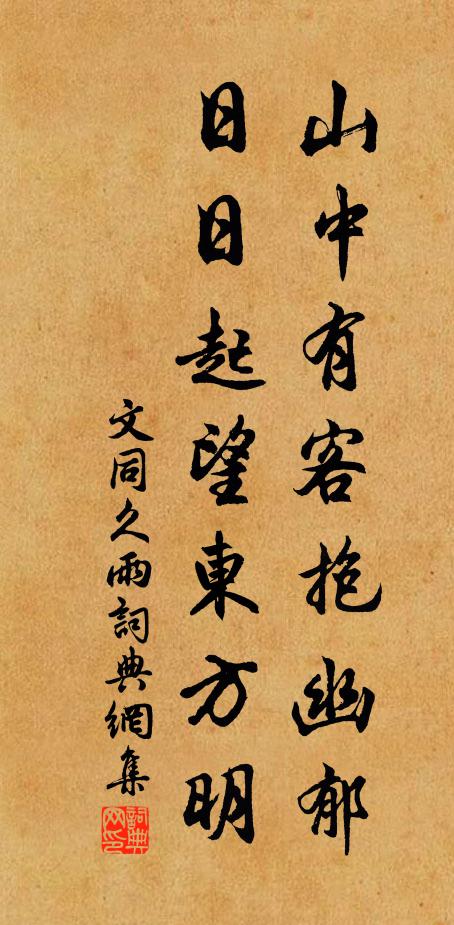 山中有客抱幽郁
日日起望東方明
文同久雨詞典網集
詞典网印